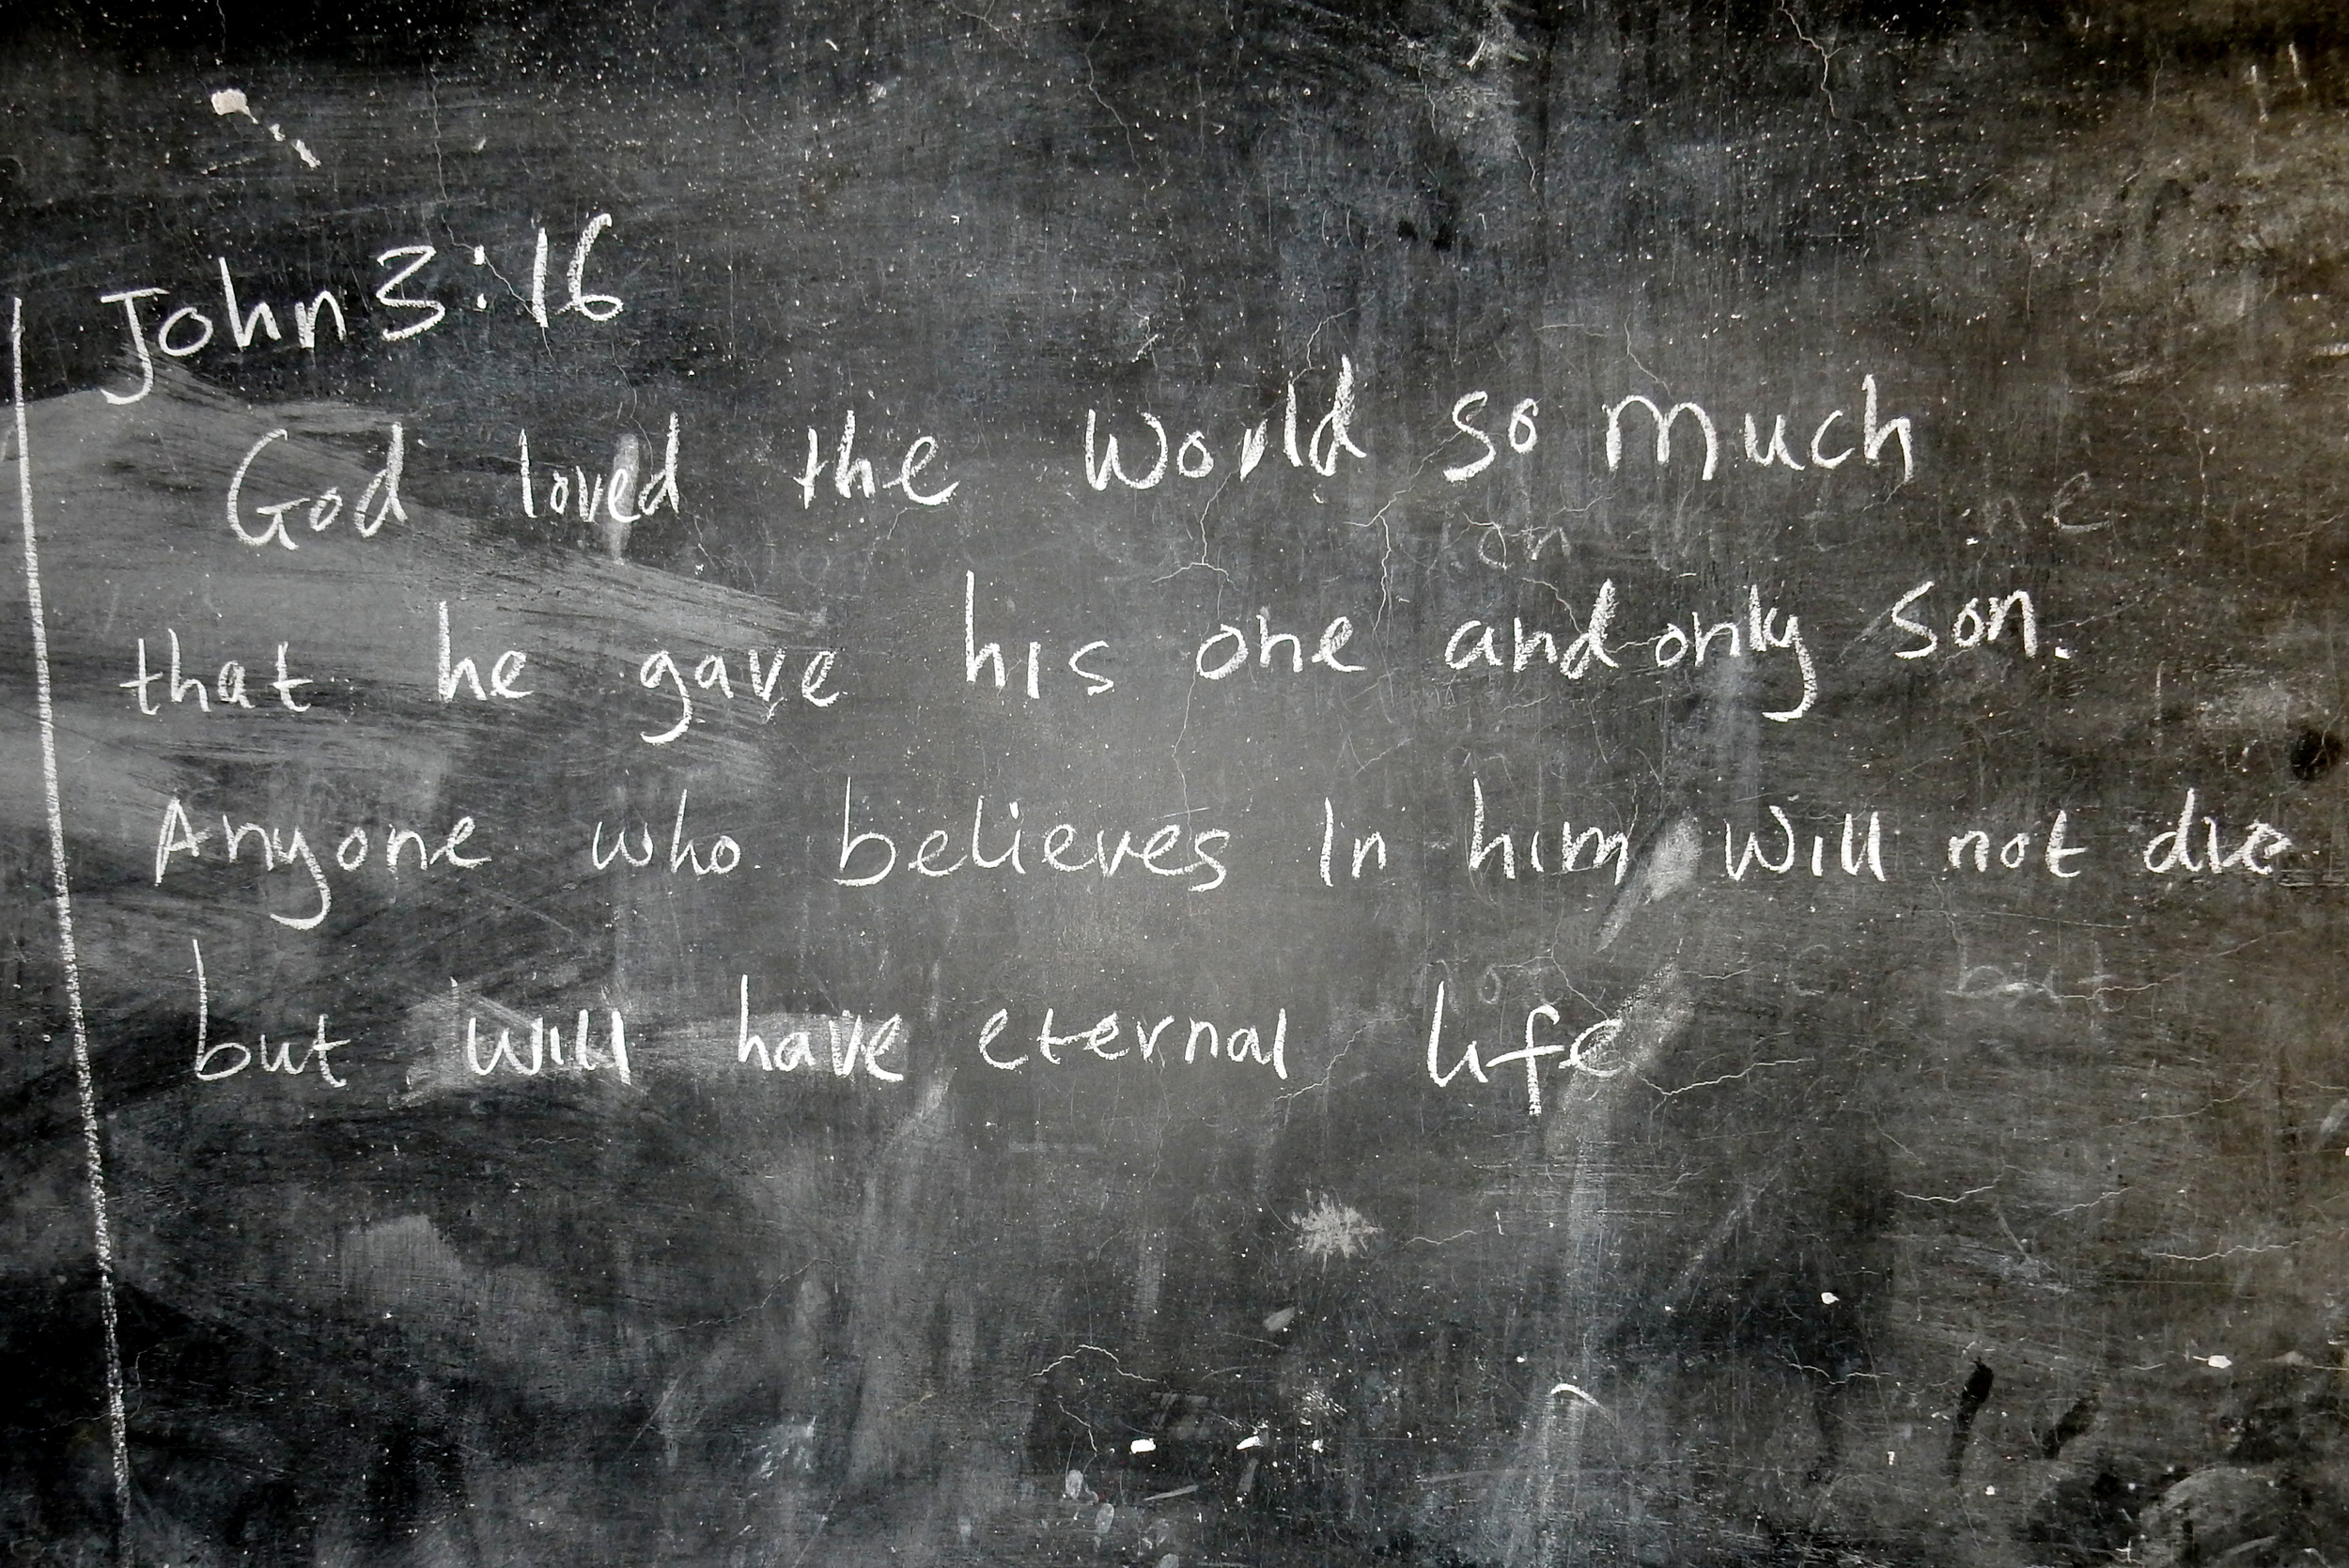 John 3:16
God loved the World so much
that he gave his one and only son.
Anyone who believes In him will not die
but will have eternal life